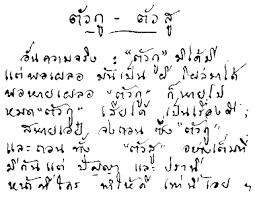 ตัวกู - ตัวสู
อันความจริง : "ตัวกู" มิได้มี
แต่พอเผลอ มันเป็น ผี โผล่มาได้
พอหายเผลอ "ตัวกู" ก็หายไป
หมด "ตัวกู" เสียได้ เป็นเรื่องดี;
สหายเอ๋ย จงถอน ซึ่ง "ตัวกู"
และถอน ทั้ง "ตัวสู" อย่างเต็มที่
มีกันแต่ ปัญญา และ ปรานี
หน้าที่ใคร ทำให้ดี เท่านี้เอย ฯ